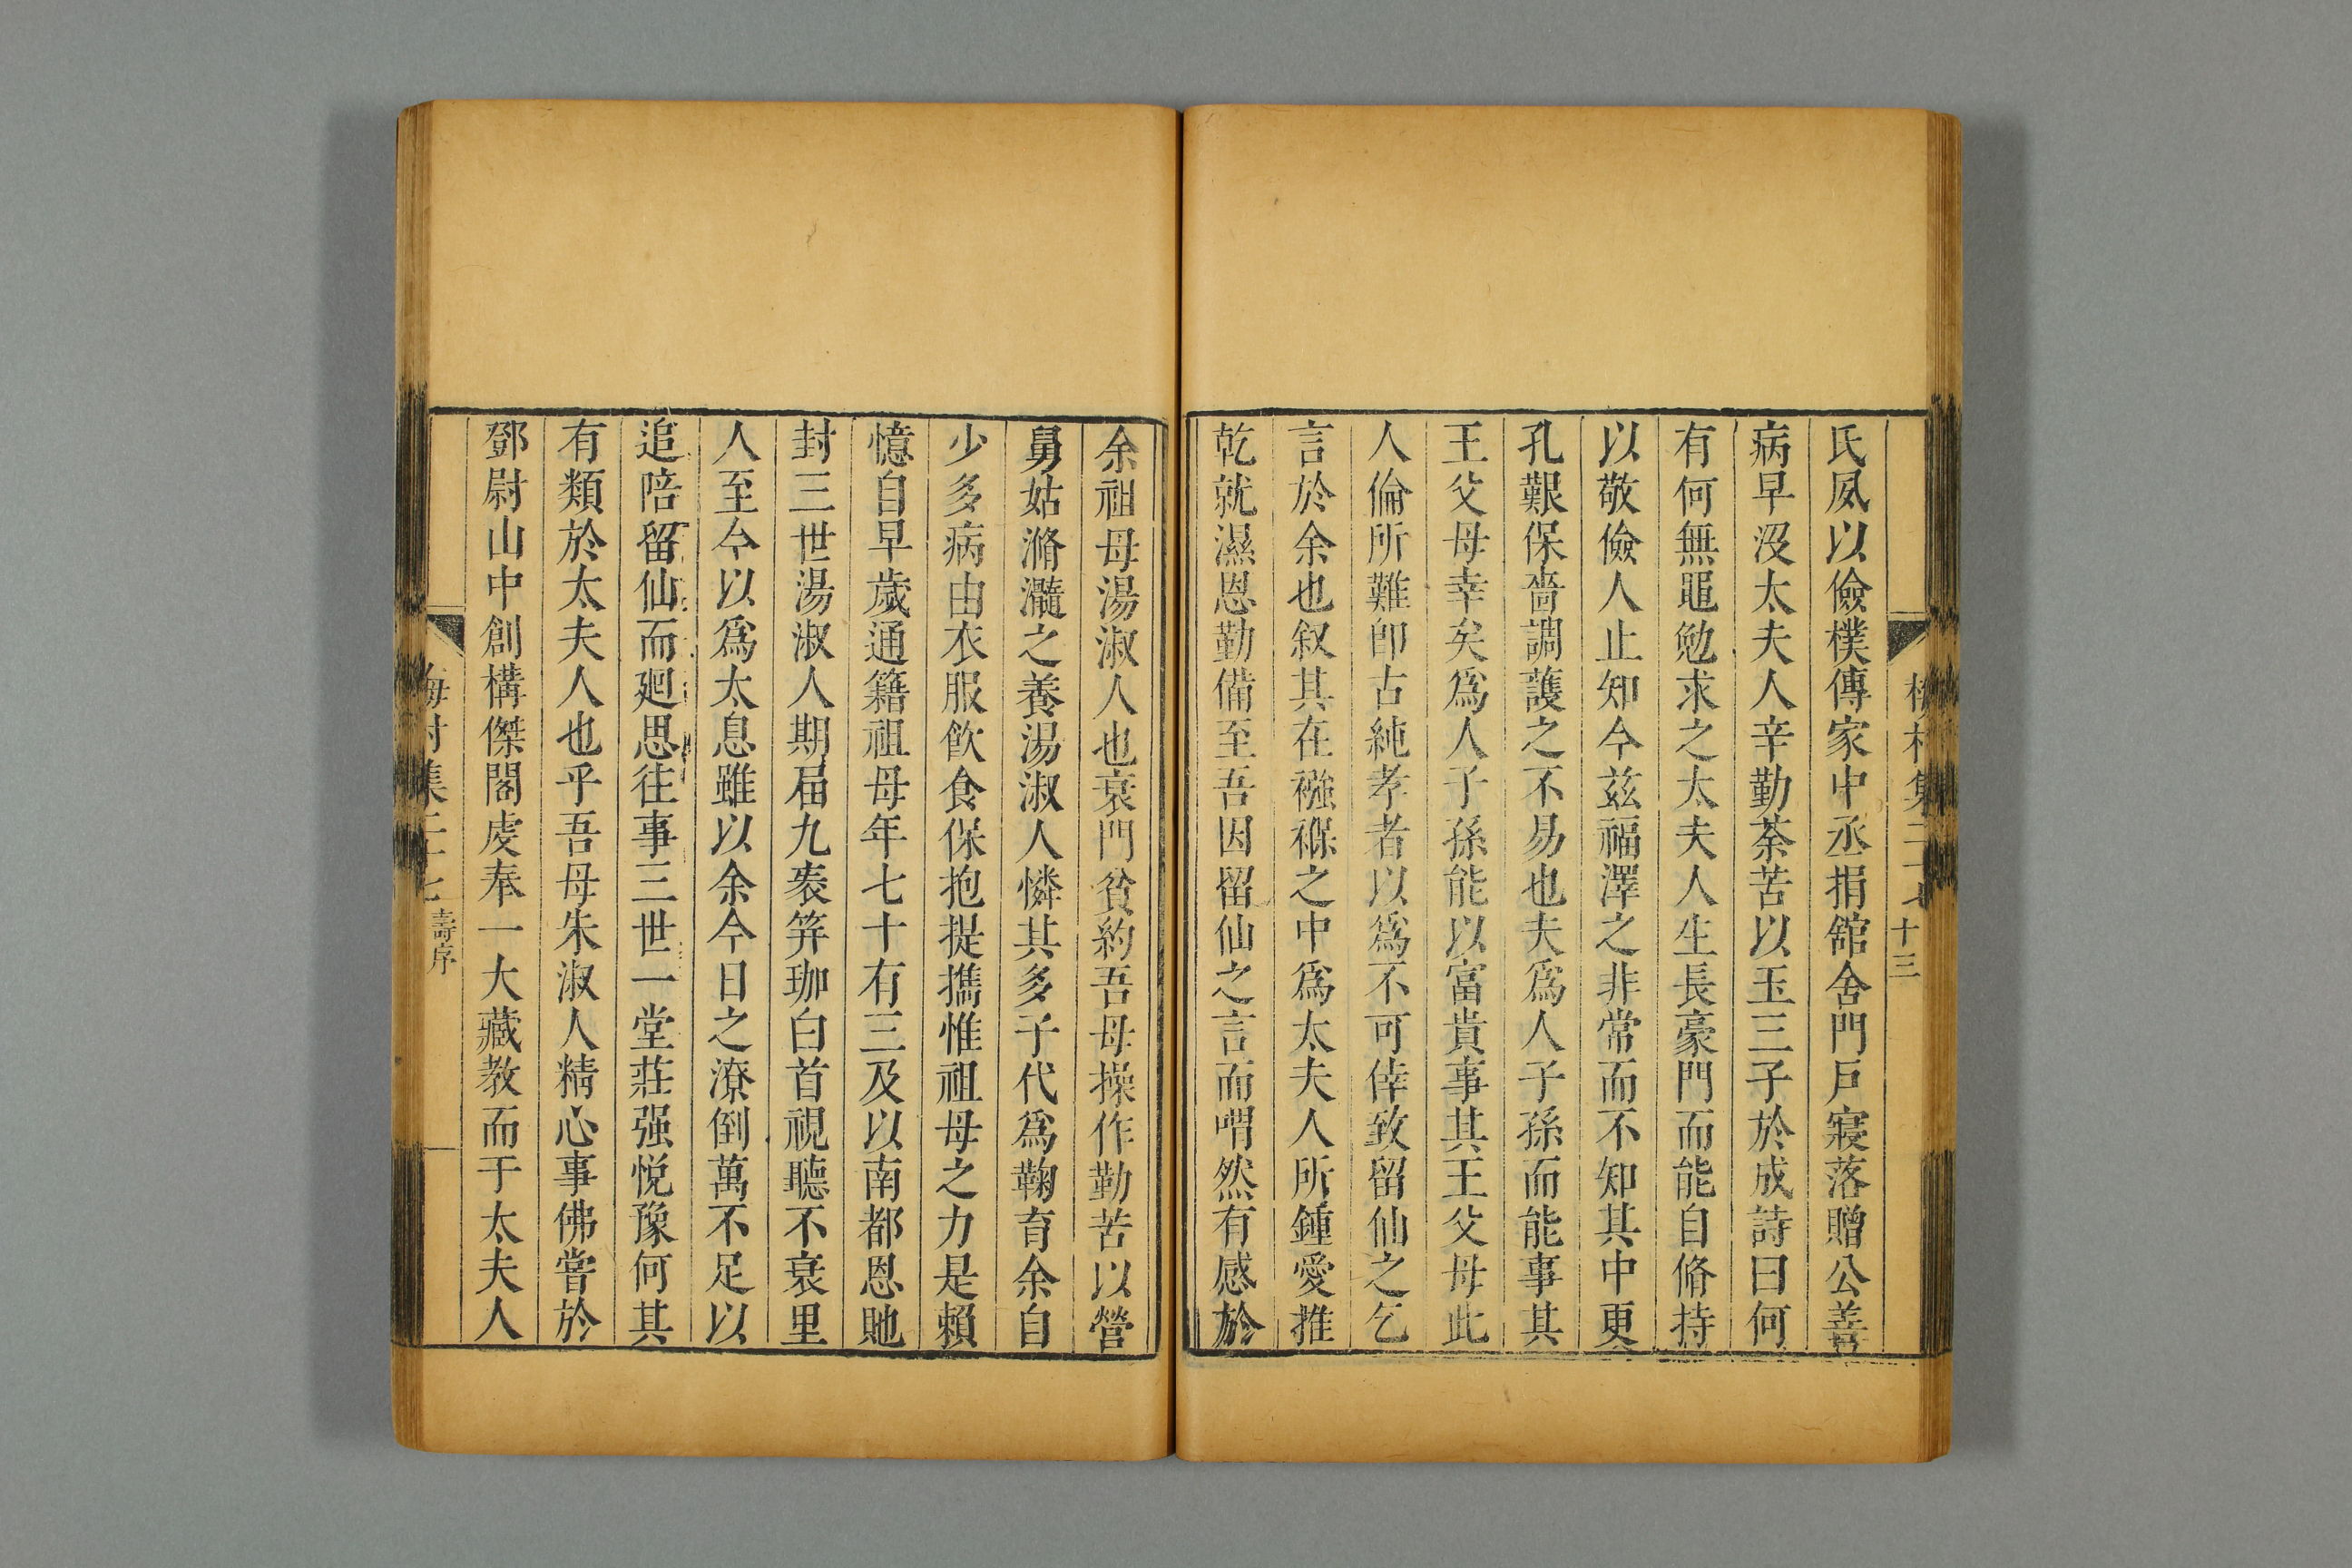 十三
氏夙以儉樸傳家中丞捐舘舍門戶寂落贈公善
病早沒太夫人辛勤荼苦以玉三子於成詩曰何
有何無黽勉求之太夫人生長豪門而能自脩持
以敬儉人止知今兹福澤之非常而不知其中更
孔艱保嗇調護之不易也夫爲人子孫而能事其
王父母幸矣爲人子孫能以富貴事其王父母此
人倫所難卽古純孝者以爲不可倖致留仙之乞
言於余也叙其在襁褓之中爲太夫人所鍾愛推
乾就濕恩勤備至吾因留仙之言而喟然有感於
余祖母湯淑人也衰門貧約吾母操作勤苦以營
舅姑滫瀡之養湯淑人憐其多子代爲鞠育余自
少多病由衣服飲食保抱提擕惟祖母之力是賴
憶自早歲通籍祖母年七十有三及以南都恩貤
封三世湯淑人期届九袠笄珈白首視聽不衰里
人至今以爲太息雖以余今日之潦倒萬不足以
追陪留仙而廻思往事三世一堂莊强悅豫何其
有類於太夫人也乎吾母朱淑人精心事佛嘗於
鄧尉山中創構傑閣虔奉一大藏教而于太夫人
梅村集二十七 壽序